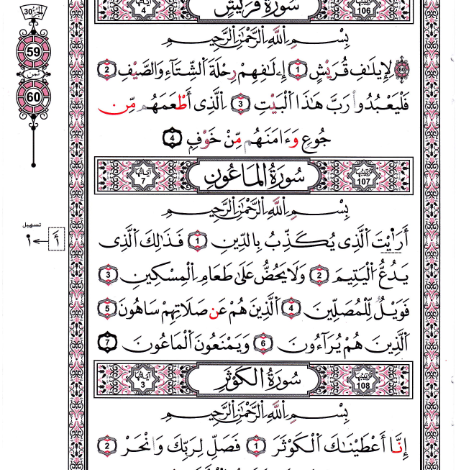 سورة قريش
ترتيبها 106
آياتها 4
بِسْمِ اللَّهِ الرَّحْمَٰنِ الرَّحِيمِ
لِإِيلَٰفِ قُرَيْشٍ 1 إِۦلَٰفِهِمْ رِحْلَةَ الشِّتَآءِ وَالصَّيْفِ 2
فَلْيَعْبُدُوا۟ رَبَّ هَٰذَا الْبَيْتِ 3 الَّذِىٓ أَطْعَمَهُم مِّن
جُوعٍ وَءَامَنَهُم مِّنْ خَوْفٍ 4
سُورَةُ الْمَاعُونِ
ترتيبها 107
آياتها 7
بِسْمِ اللَّهِ الرَّحْمَٰنِ الرَّحِيمِ
أَرَٰيْتَ الَّذِى يُكَذِّبُ بِالدِّينِ 1 فَذَٰلِكَ الَّذِى
يَدُعُّ الْيَتِيمَ 2 وَلَا يَحُضُّ عَلَىٰ طَعَامِ الْمِسْكِينِ 3
فَوَيْلٌ لِّلْمُصَلِّينَ 4 الَّذِينَ هُمْ عَن صَلَاتِهِمْ سَاهُونَ 5
الَّذِينَ هُمْ يُرَآءُونَ 6 وَيَمْنَعُونَ الْمَاعُونَ 7
سُورَةُ الْكَوْثَرِ
ترتيبها 108
آياتها 3
بِسْمِ اللَّهِ الرَّحْمَٰنِ الرَّحِيمِ
إِنَّآ أَعْطَيْنَٰكَ الْكَوْثَرَ 1 فَصَلِّ لِرَبِّكَ وَانْحَرْ 2
30
59
60
تسهيل